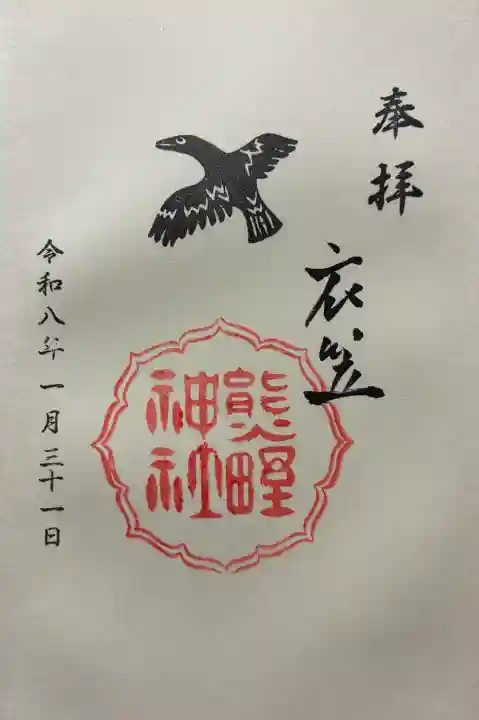 奉拝
衣笠
熊野
神社
令和八年一月三十一日